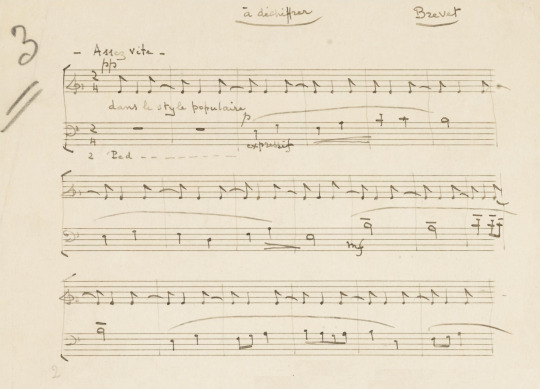 à déchiffrer Brevet
3
- Assez vite -
pp
2
4
dans le style populaire
p
2
4
expressif
2 Ped - - - - - - - -
mf
2